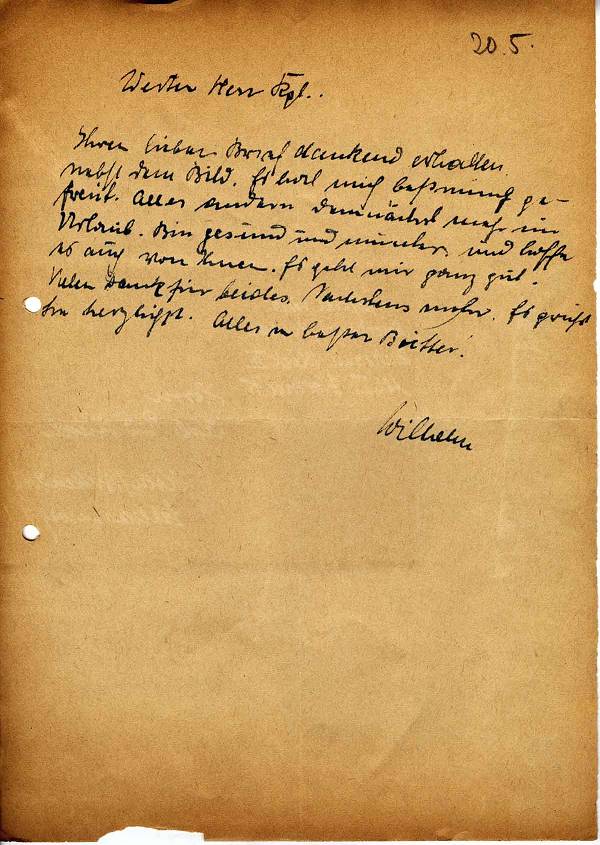 20.5.
Werter Herr Kgl..
Ihren lieben Brief dankend erhalten
nebst dem Bild. Es hat mich ge-
freut. Alles andere demnächst mehr im
Urlaub. Bin gesund und munter und hoffe
es auch von Ihnen. Es geht mir ganz gut.
Vielen Dank für beides. Nächstens mehr. Es grüßt
Sie herzlichst. Alles in bester Butter!
Wilhelm